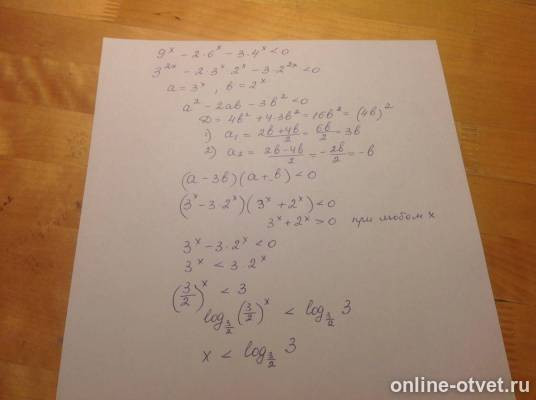 9^x − 2·6^x − 3·4^x < 0
3^{2x} − 2·3^x·2^x − 3·2^{2x} < 0
a = 3^x , b = 2^x
a² − 2ab − 3b² < 0
D = 4b² + 4·3b² = 16b² = (4b)²
1) a₁ = (2b+4b)/2 = 6b/2 = 3b
2) a₂ = (2b−4b)/2 = −2b/2 = −b
(a − 3b)(a + b) < 0
(3^x − 3·2^x)(3^x + 2^x) < 0
3^x + 2^x > 0 при любом x
3^x − 3·2^x < 0
3^x < 3·2^x
(3/2)^x < 3
log_{3/2} (3/2)^x < log_{3/2} 3
x < log_{3/2} 3
online-otvet.ru